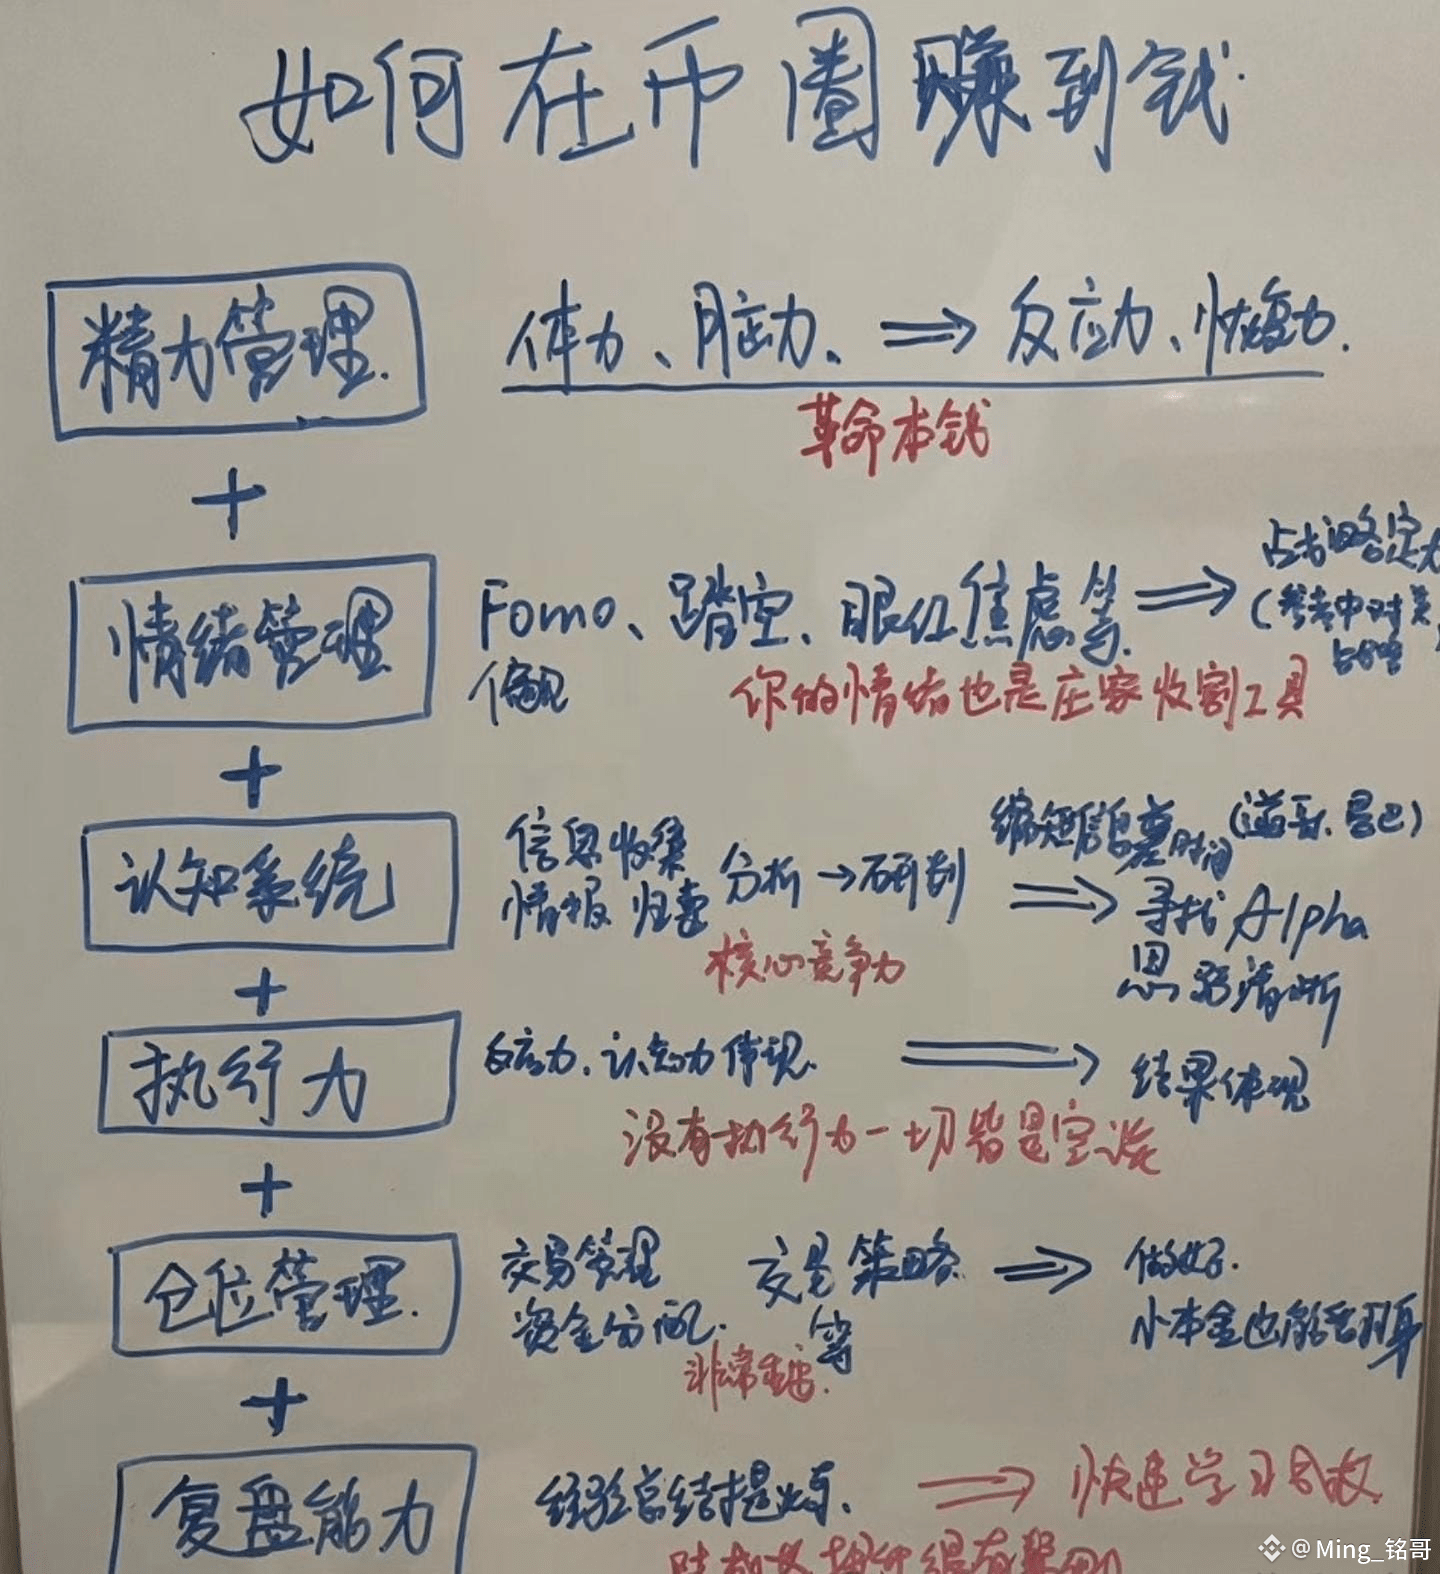 如何在币圈赚到钱.
精力管理.
体力、脑力、 ⟹ 反应力、恢复力.
革命本钱
+
情绪管理
Fomo、踏空、眼红焦虑等.
偏见
⟹ 战略定力
(参考中对美
战略)
你的情绪也是庄家收割工具
+
认知系统
信息收集
情报 归集
分析 → 研判
缩短信息差时间
⟹ 寻找 Alpha
思路清晰
核心竞争力
+
执行力
反应力、认知力体现. ⟹ 结果体现
没有执行力一切皆是空谈
+
仓位管理.
交易管理
资金分配.
交易策略
等
⟹ 做好.
小本金也能翻身
非常重要.
+
复盘能力
经验总结提炼、 ⟹ 快速学习
@Ming_铭哥